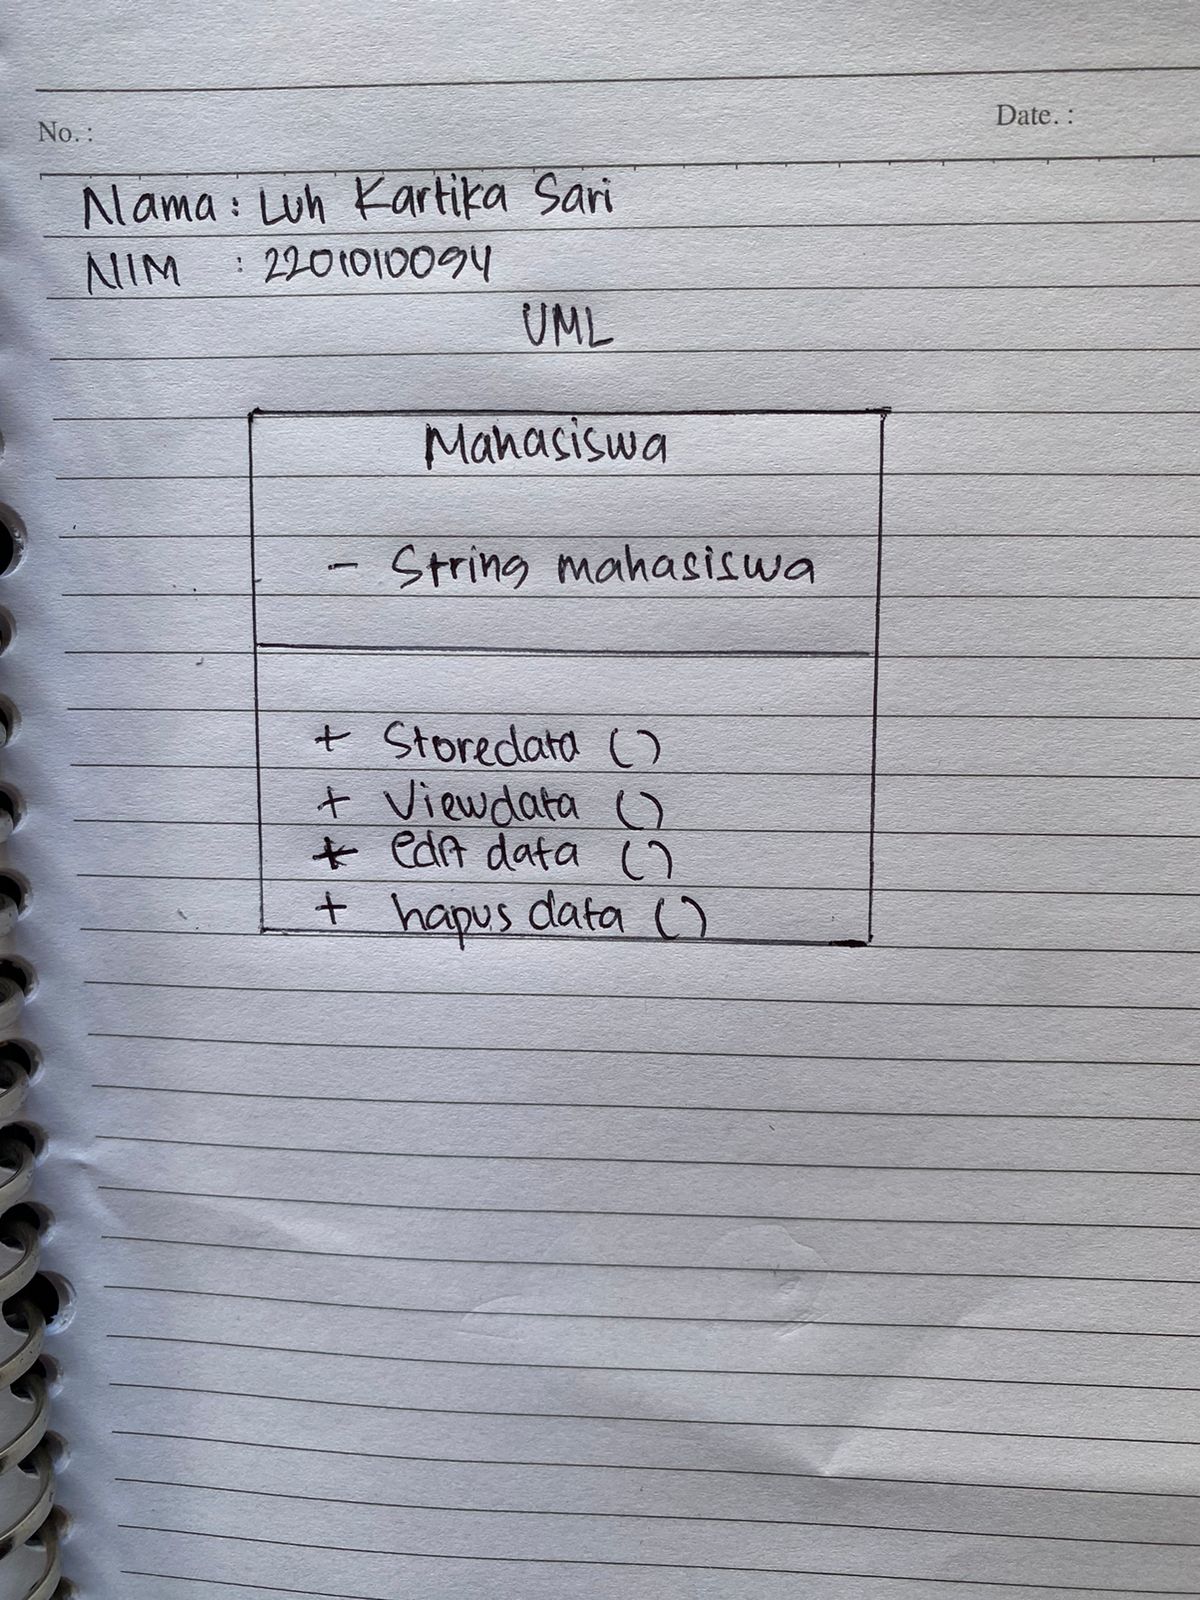 No. :
Date. :
Nama : Luh Kartika Sari
NIM : 2201010094
UML
Mahasiswa
- String mahasiswa
+ Storedata ()
+ Viewdata ()
+ edit data ()
+ hapus data ()